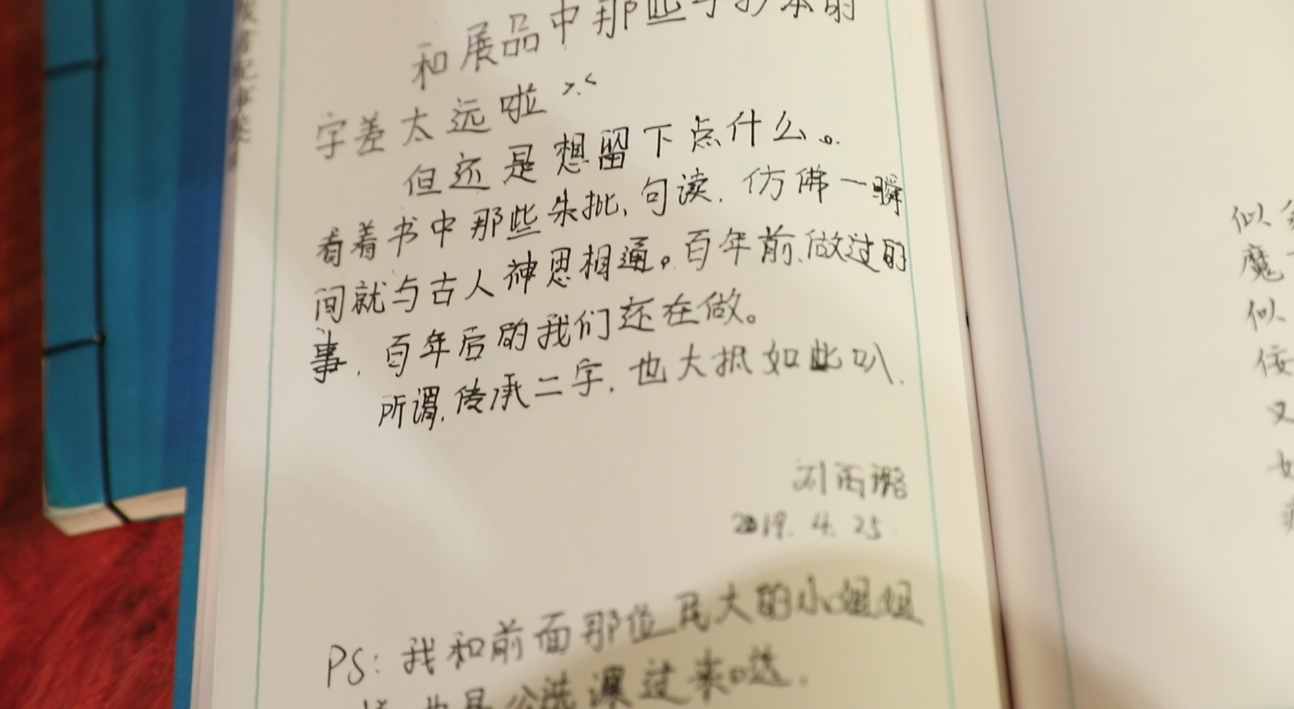 和展品中那些手抄本的
字差太远啦 >.<
但还是想留下点什么。
看着书中那些朱批、句读，仿佛一瞬
间就与古人神思相通。百年前做过的
事，百年后的我们还在做。
所谓传承二字，也大抵如此叭。
2019.4.25.
PS：我和前面那位民大的小姐姐
过来哒.
似
魔
似
佞
又